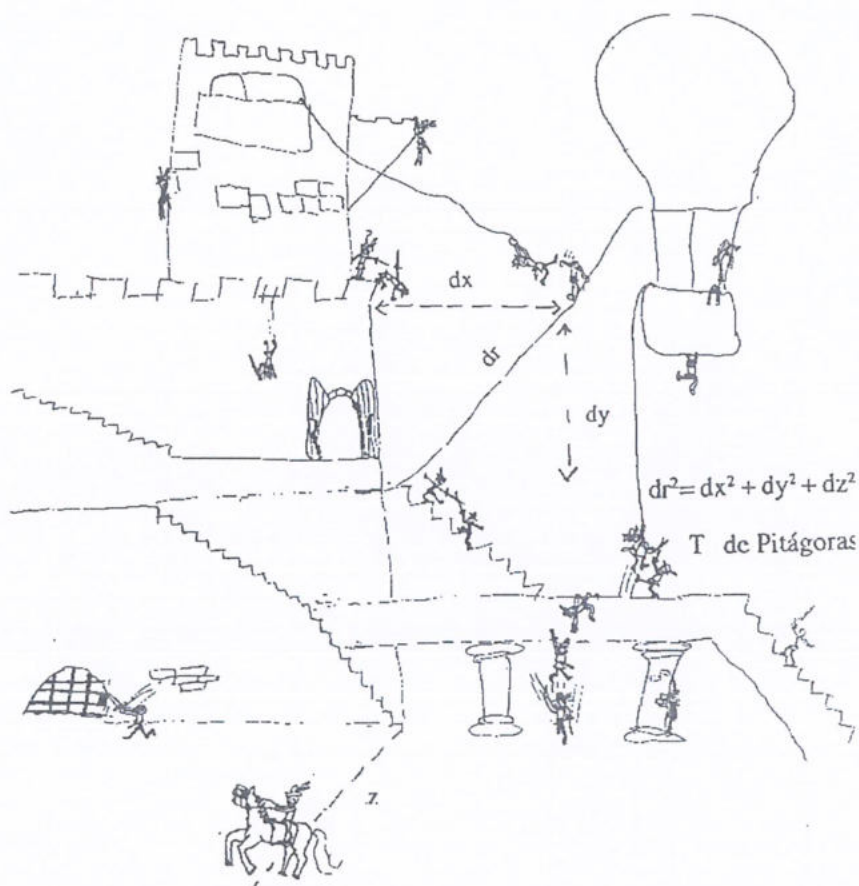 dx
dr
dy
dr² = dx² + dy² + dz²
T de Pitágoras
z